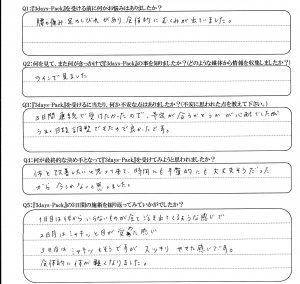 Q1:『3days-Pack』を受ける前に何かお悩みはありましたか?
腰の痛み、足のしびれがあり、全体的にむくみが出ていました。
Q2:何を見て、また何がきっかけで『3days-Pack』の事を知りましたか?(どのような媒体から情報を収集しましたか?)
ラインで見ました
Q3:『3days-Pack』を受けるに当たり、何か不安な点はありましたか?(不安に思われた点を教えて下さい。)
3日間連続で受けたかったので、予定が合うかどうかが心配でしたが
うまく日程調整できたので良かったです。
Q4:何が最終的な決め手となって『3days-Pack』を受けてみようと思われましたか?
体を改善したいと思って来て、時間にも予算的にも大丈夫そうだった
から 今しかないと思いました。
Q5:『3days-Pack』の3日間の施術を振り返ってみていかがでしたか?
1日目は体からいらないものが全て流れ出てくるような感じで
2日目はシャキッと目が覚めた感じ
3日目はシャキッもそうですが スッキリ やせた感じです。
全体的に体が軽くなりました。